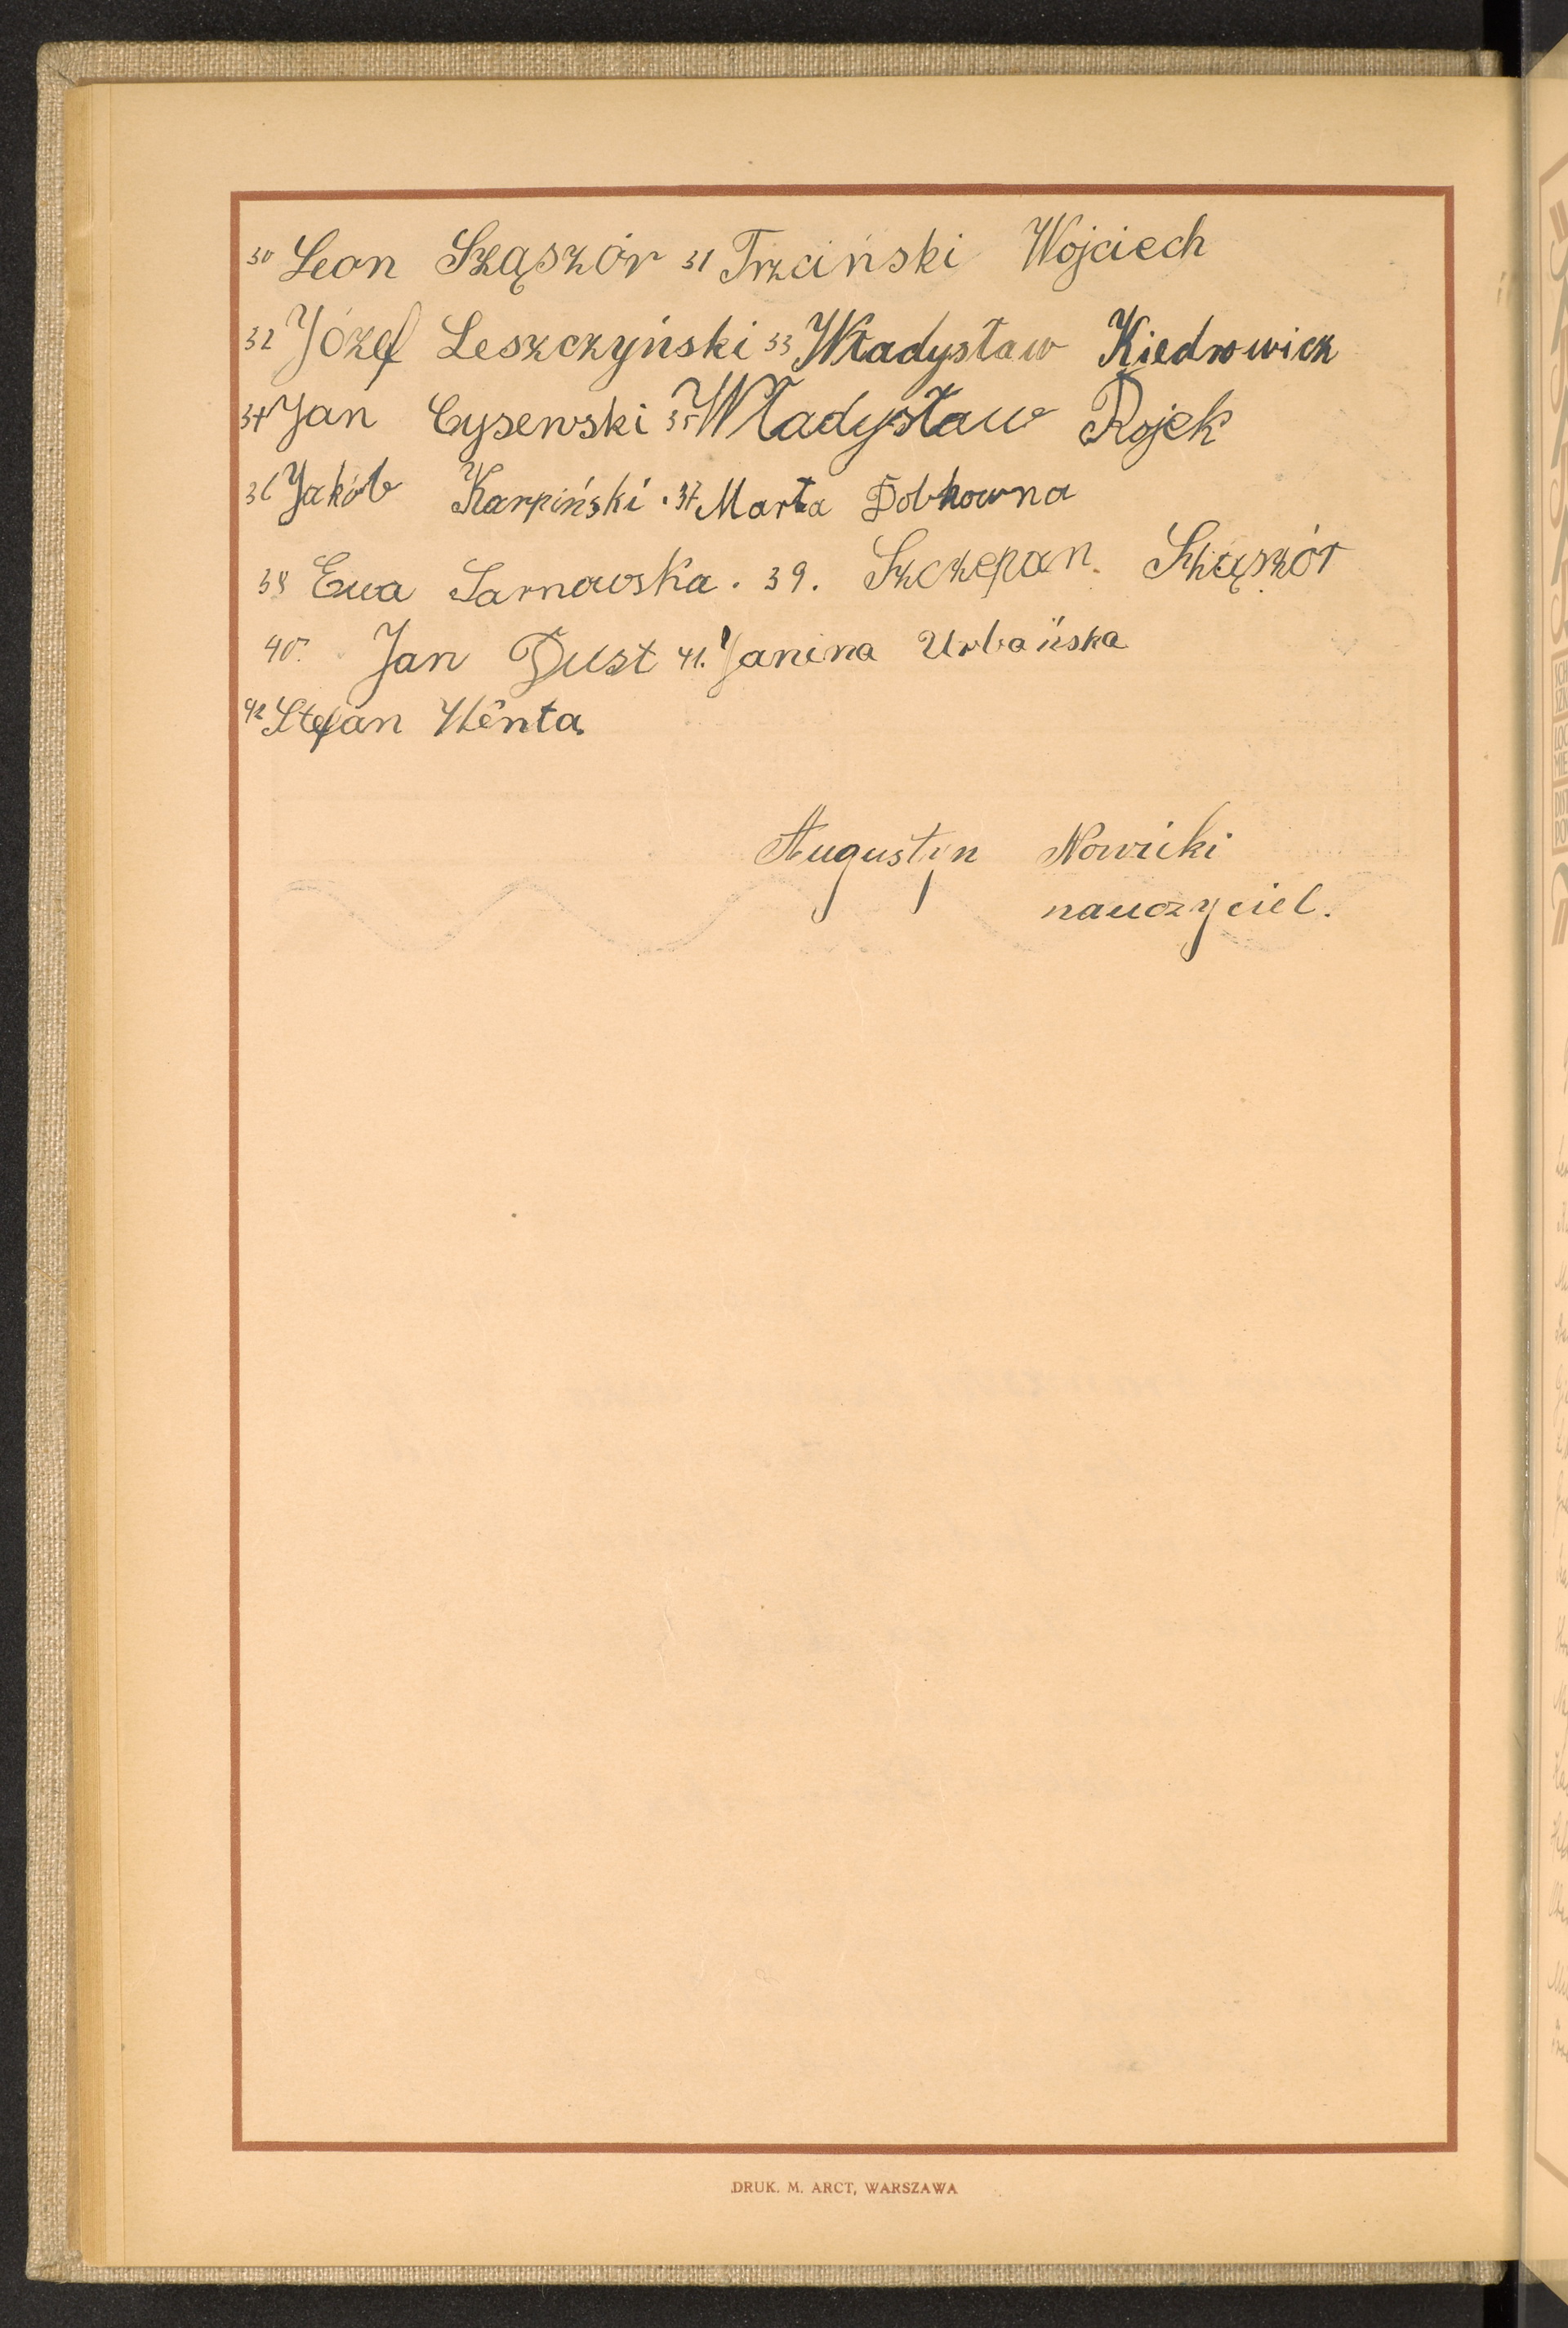 30 Leon Szązór 31 Trzciński Wojciech
32 Józef Leszczyński 33 Władysław Kiedrowicz
34 Jan Cysewski 35 Władysław Rojek
36 Jakób Karpiński. 37 Marta
38 Ewa Sarnowska. 39. Szczepan.
40. Jan Dust 41. Janina Urbańska
42 Stefan Wenta.
Augustyn Nowicki
nauczyciel.
DRUK. M. ARCT, WARSZAWA